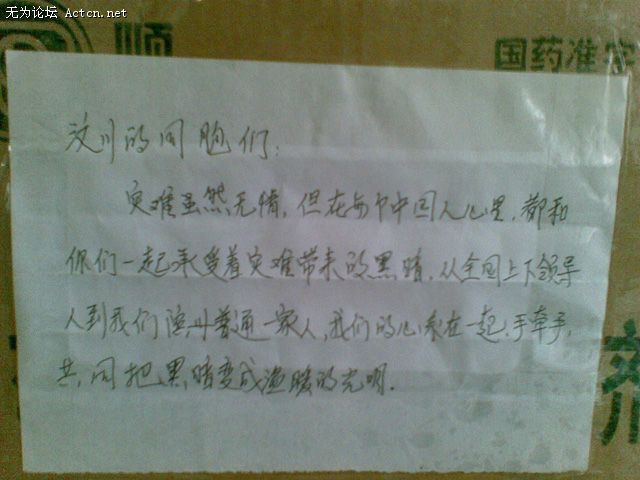 无为论坛 Actcn.net
顺
国药准字
汶川的同胞们:
灾难虽然无情,但在每个中国人心里,都和
你们一起承受着灾难带来的黑暗.从全国上下领导
人到我们 普通一家人,我们的心系在一起,手牵手,
共同把黑暗变成温暖的光明.